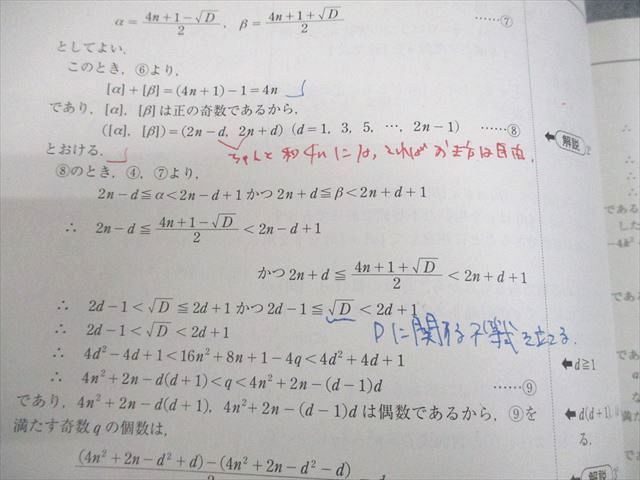 α = (4n+1−√D)/2, β = (4n+1+√D)/2 ……⑦
としてよい.
このとき, ⑥より,
[α]+[β]=(4n+1)−1=4n
であり, [α], [β]は正の奇数であるから,
([α], [β])=(2n−d, 2n+d) (d=1, 3, 5, …, 2n−1) ……⑧
とおける.
⑧のとき, ④, ⑦より,
2n−d≦α<2n−d+1 かつ 2n+d≦β<2n+d+1
∴ 2n−d≦(4n+1−√D)/2<2n−d+1
かつ 2n+d≦(4n+1+√D)/2<2n+d+1
∴ 2d−1<√D≦2d+1 かつ 2d−1≦√D<2d+1
Dに関する不等式を立てる.
∴ 2d−1<√D<2d+1
∴ 4d²−4d+1<16n²+8n+1−4q<4d²+4d+1
∴ 4n²+2n−d(d+1)<q<4n²+2n−(d−1)d ……⑨
であり, 4n²+2n−d(d+1), 4n²+2n−(d−1)d は偶数であるから, ⑨を
満たす奇数 q の個数は,
(4n²+2n−d²+d)−(4n²+2n−d²−d)
解説
d≧1
d(d+1),
る.
解説